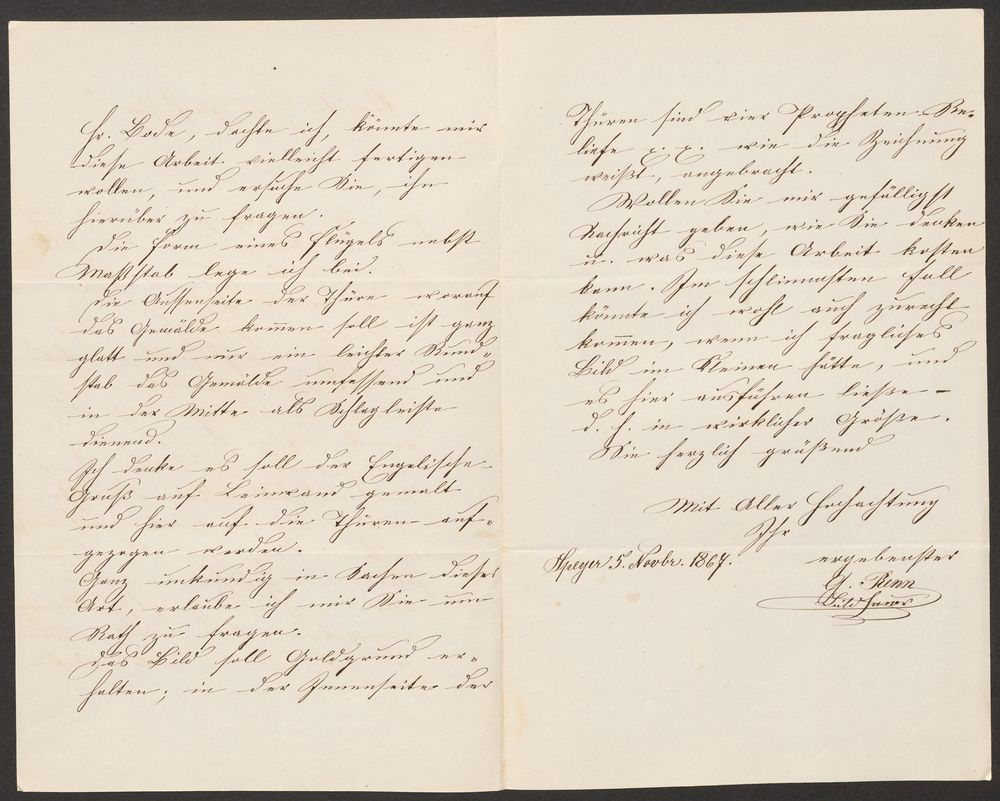 Hr. Bode, dachte ich, könnte mir
diese Arbeit vielleicht fertigen
wollen, und ersuche Sie, ihn
hierüber zu fragen.
Die Form eines Flügels nebst
Maßstab lege ich bei.
Die Aussenseite der Thüre worauf
das Gemälde kom̄en soll ist ganz
glatt und nur ein leichter Rund-
stab das Gemälde umfassend und
in der Mitte als Schlagleiste
dienend.
Ich denke es soll der Engelische-
Gruß auf Leinwand gemalt
und hier auf die Thüren auf-
gezogen werden.
Ganz unkundig in Sachen dieser
Art, erlaube ich mir Sie um
Rath zu fragen.
Das Bild soll Goldgrund er-
halten; in der Innenseite der
Thüren sind vier Propheten Re-
liefe p. p. wie die Zeichnung
weißt, angebracht.
Wollen Sie mir gefälligst
Nachricht geben, wie Sie denken
u. was diese Arbeit kosten
kann. Im schlimmsten Fall
könnte ich wohl auch zurecht
kom̄en, wenn ich fragliches
Bild im Kleinen hätte, und
es hier ausführen ließe –
d. h. in wirklicher Größe.
Sie herzlich grüßend
Mit Aller Hochachtung
Ihr
ergebenster
Speyer 5. Novbr. 1867.
G. Renn
Bildhauer